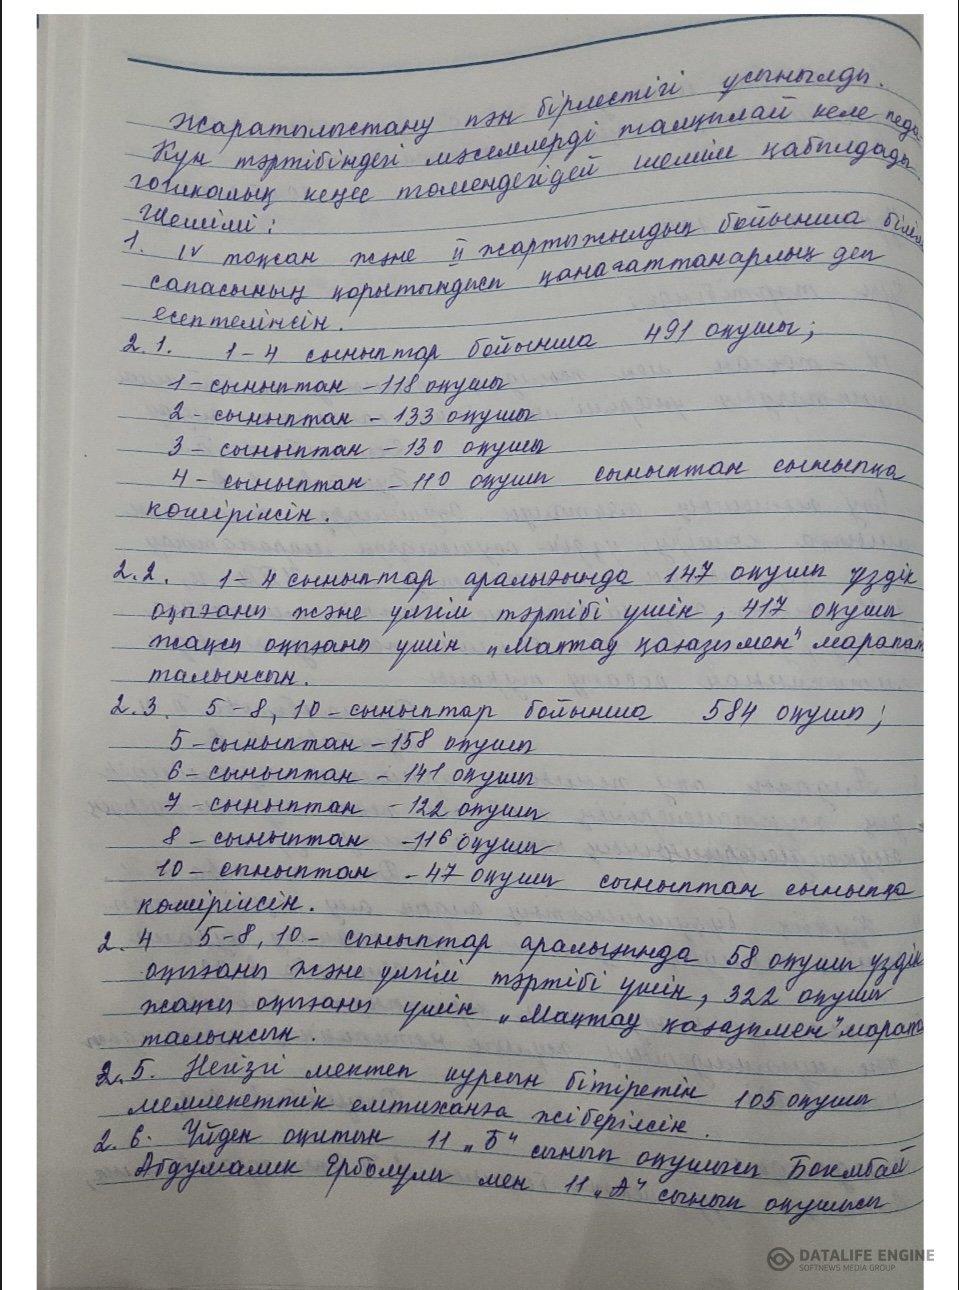 Жаратылыстану пән бірлестігі ұсынылды.
Күн тәртібіндегі мәселелерді талқылай келе педа-
гогикалық кеңес төмендегідей шешім қабылдады
Шешімі:
1. IV тоқсан және II жартыжылдық бойынша білім
сапасының қорытындысы қанағаттанарлық деп
есептелінсін.
2.1. 1-4 сыныптар бойынша 491 оқушы;
1-сыныптан -118 оқушы
2-сыныптан - 133 оқушы
3-сыныптан - 130 оқушы
4-сыныптан 110 оқушы сыныптан сыныпқа
көшірілсін.
2.2. 1-4 сыныптар аралығында 147 оқушы үздік
оқығаны және үлгілі тәртібі үшін, 417 оқушы
жақсы оқығаны үшін „Мақтау қағазымен" марапат
талынсын.
2.3. 5-8, 10-сыныптар бойынша 584 оқушы;
5-сыныптан -158 оқушы
6-сыныптан - 141 оқушы
7-сыныптан -122 оқушы
8-сыныптан -116 оқушы
10-сыныптан -47 оқушы сыныптан сыныпқа
көшірілсін.
2.4 5-8, 10-сыныптар аралығында 58 оқушы үздік
оқығаны және үлгілі тәртібі үшін, 322 оқушы
жақсы оқығаны үшін „Мақтау қағазымен" марапа
талынсын.
2.5. Негізгі мектеп курсын бітіретін 105 оқушы
мемлекеттік емтиханға жіберілсін.
2.6. Үйден оқитын 11 „Б" сынып оқушысы Бекмбай
Абдумалик Ерболұлы мен 11 „А" сынып оқушысы
DATALIFE ENGINE
SOFTNEWS MEDIA GROUP